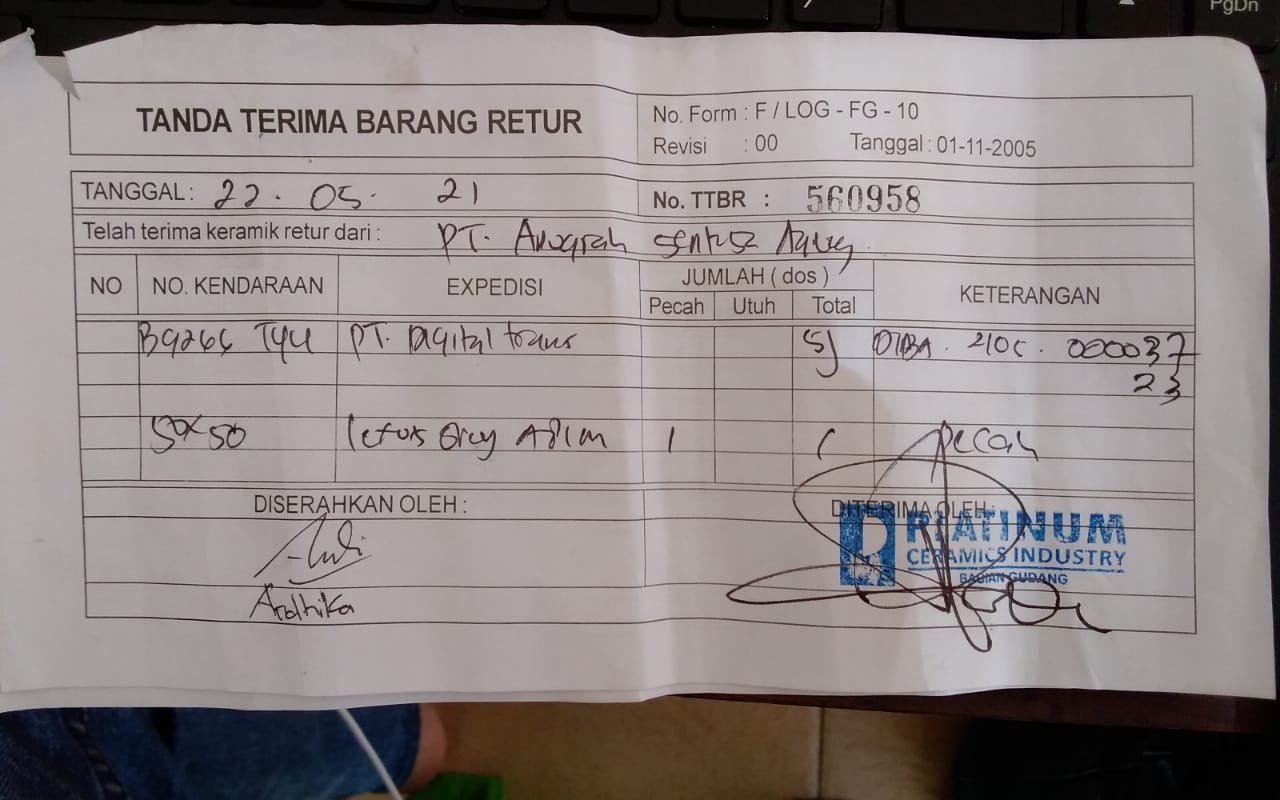 PgDn
TANDA TERIMA BARANG RETUR
No. Form : F / LOG - FG - 10
Revisi : 00 Tanggal : 01-11-2005
TANGGAL : 22 . 05 . 21
No. TTBR : 560958
Telah terima keramik retur dari : PT. Anugrah Sentosa
NO NO. KENDARAAN EXPEDISI JUMLAH ( dos ) KETERANGAN
Pecah Utuh Total
PT. Digital trans SJ 000037
23
50x50 Grey 1 1 pecah
DISERAHKAN OLEH : DITERIMA OLEH :
PLATINUM
CERAMICS INDUSTRY
BAGIAN GUDANG
Ardhika